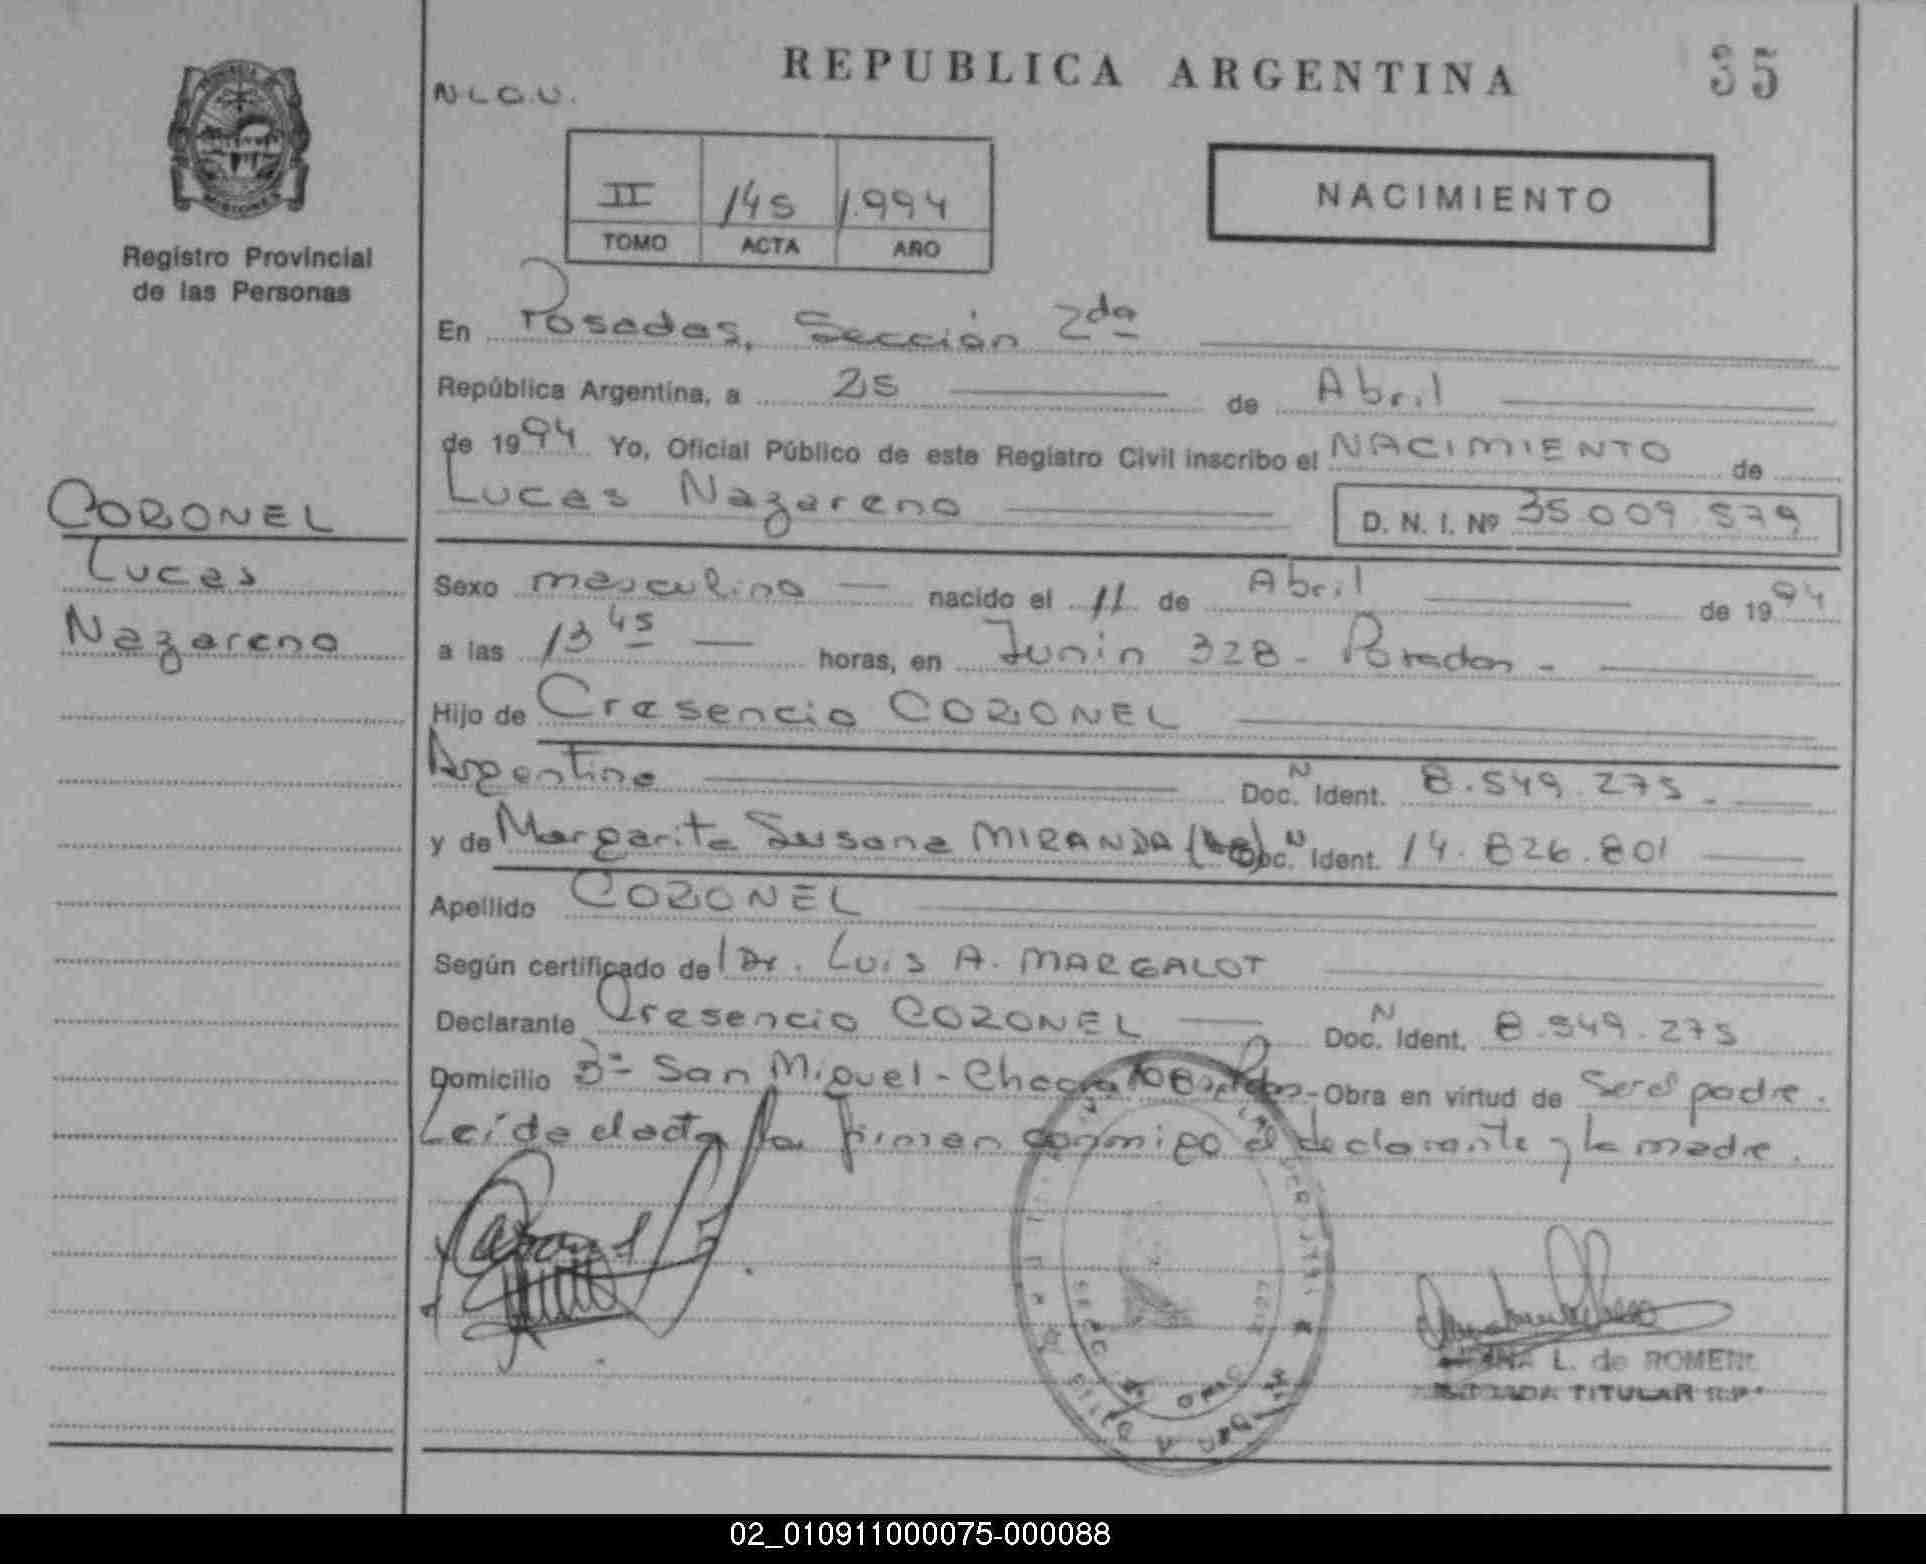 REPUBLICA ARGENTINA
35
N.L.O.U.
II 145 1.994
TOMO ACTA AÑO
NACIMIENTO
Registro Provincial
de las Personas
CORONEL
Lucas
Nazareno
En Posadas, Sección 2da
República Argentina, a 25 de Abril
de 1994 Yo, Oficial Público de este Registro Civil inscribo el NACIMIENTO de
Lucas Nazareno D. N. I. Nº 35.009.579
Sexo masculino nacido el 11 de Abril de 1994
a las 13 45 horas, en Junín 328 - Posadas -
Hijo de Cresencio CORONEL
Argentino N Doc. Ident. 8.549.275
y de Margarita Susana MIRANDA N Doc. Ident. 14.826.801
Apellido CORONEL
Según certificado del Dr. Luis A. MARGALOT
Declarante Cresencio CORONEL N Doc. Ident. 8.549.275
Domicilio Bº San Miguel - Chacra - Obra en virtud de Ser el padre.
Leída el acta la firman conmigo el declarante y la madre.
L. de ROMERO
TITULAR R.P.
02_010911000075-000088